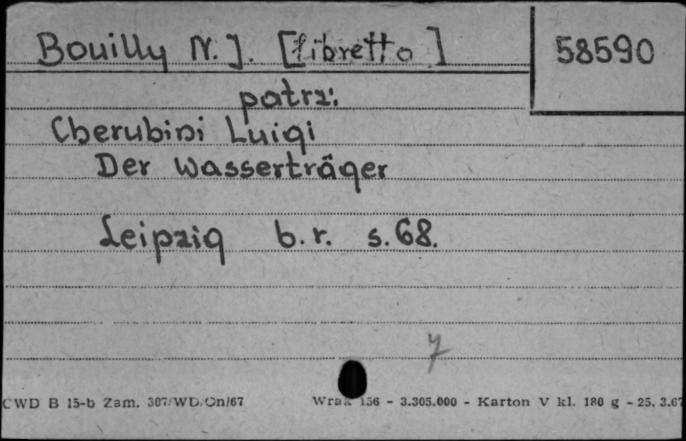 Bouilly N. J. [libretto] 58590
patrz:
Cherubini Luigi
Der Wasserträger
Leipzig b.r. s. 68.
7
CWD B 15-b Zam. 307/WD/On/67 Wrak 156 - 3.305.000 - Karton V kl. 180 g - 25. 3.67